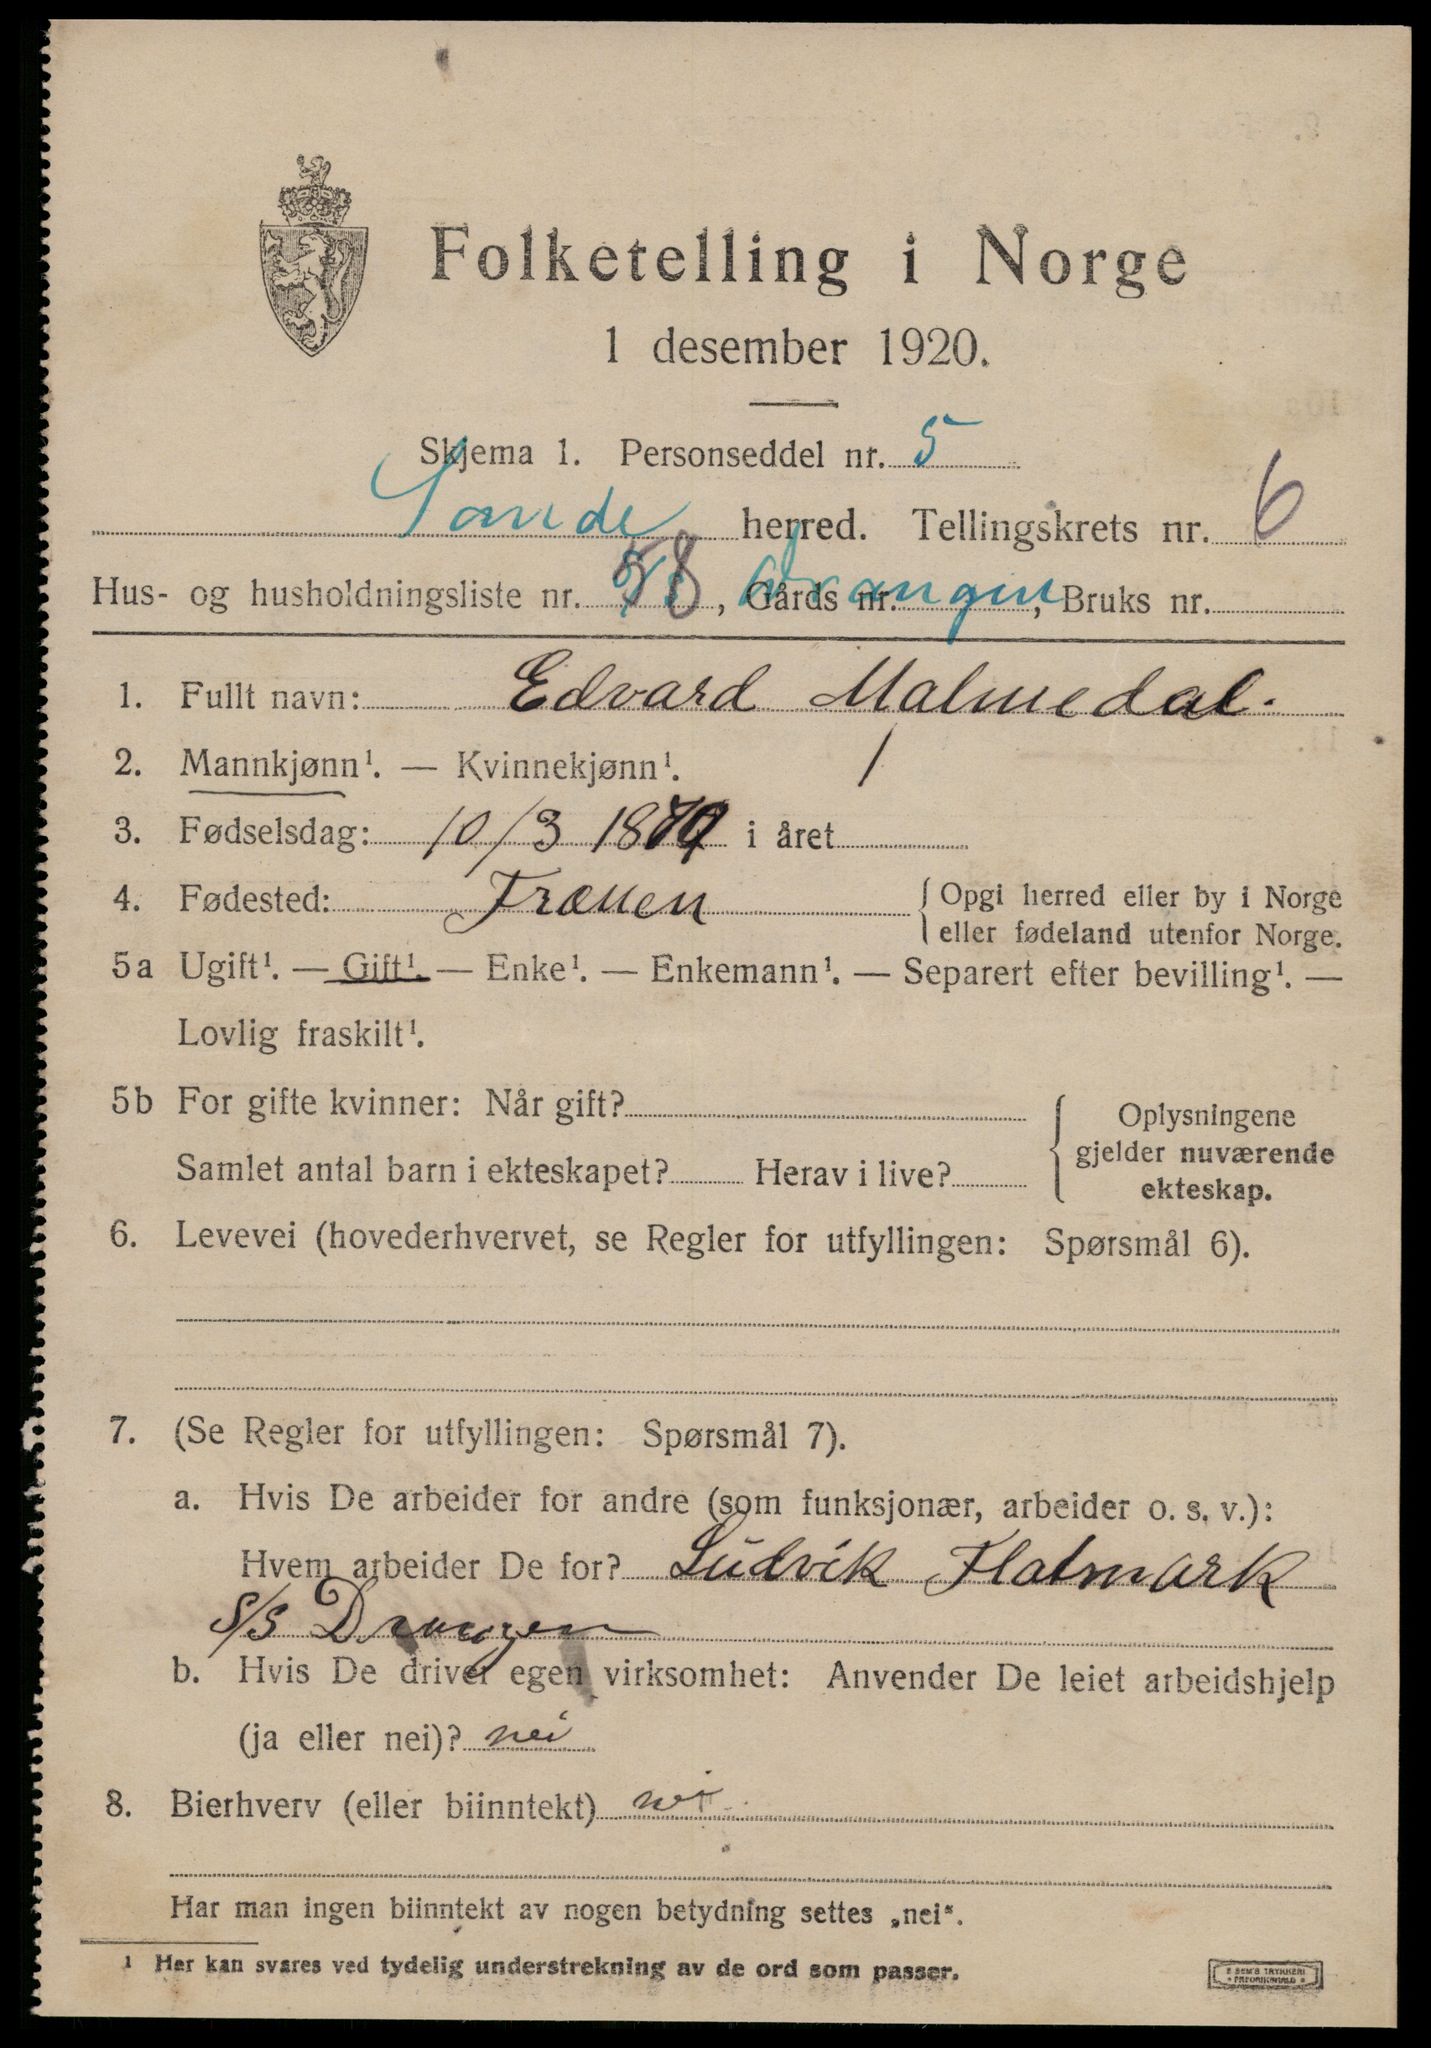 Folketelling i Norge
1 desember 1920.
Skjema 1. Personseddel nr. 5
Sande herred. Tellingskrets nr. 6
Hus- og husholdningsliste nr. 58, Gårds nr. , Bruks nr.
1. Fullt navn: Edvard Malmedal.
2. Mannkjønn¹. — Kvinnekjønn¹. /
3. Fødselsdag: 10/3 1879 i året
4. Fødested: Frænen { Opgi herred eller by i Norge
eller fødeland utenfor Norge.
5a Ugift¹. — Gift¹. — Enke¹. — Enkemann¹. — Separert efter bevilling¹. —
Lovlig fraskilt¹.
5b For gifte kvinner: Når gift? { Oplysningene
gjelder nuværende
Samlet antal barn i ekteskapet? Herav i live?
ekteskap.
6. Levevei (hovederhvervet, se Regler for utfyllingen: Spørsmål 6).
7. (Se Regler for utfyllingen: Spørsmål 7).
a. Hvis De arbeider for andre (som funksjonær, arbeider o. s. v.):
Hvem arbeider De for? Ludvik Flatmark
s/s Drangen
b. Hvis De driver egen virksomhet: Anvender De leiet arbeidshjelp
(ja eller nei)? nei
8. Bierhverv (eller biinntekt) nei
Har man ingen biinntekt av nogen betydning settes „nei“.
¹ Her kan svares ved tydelig understrekning av de ord som passer.